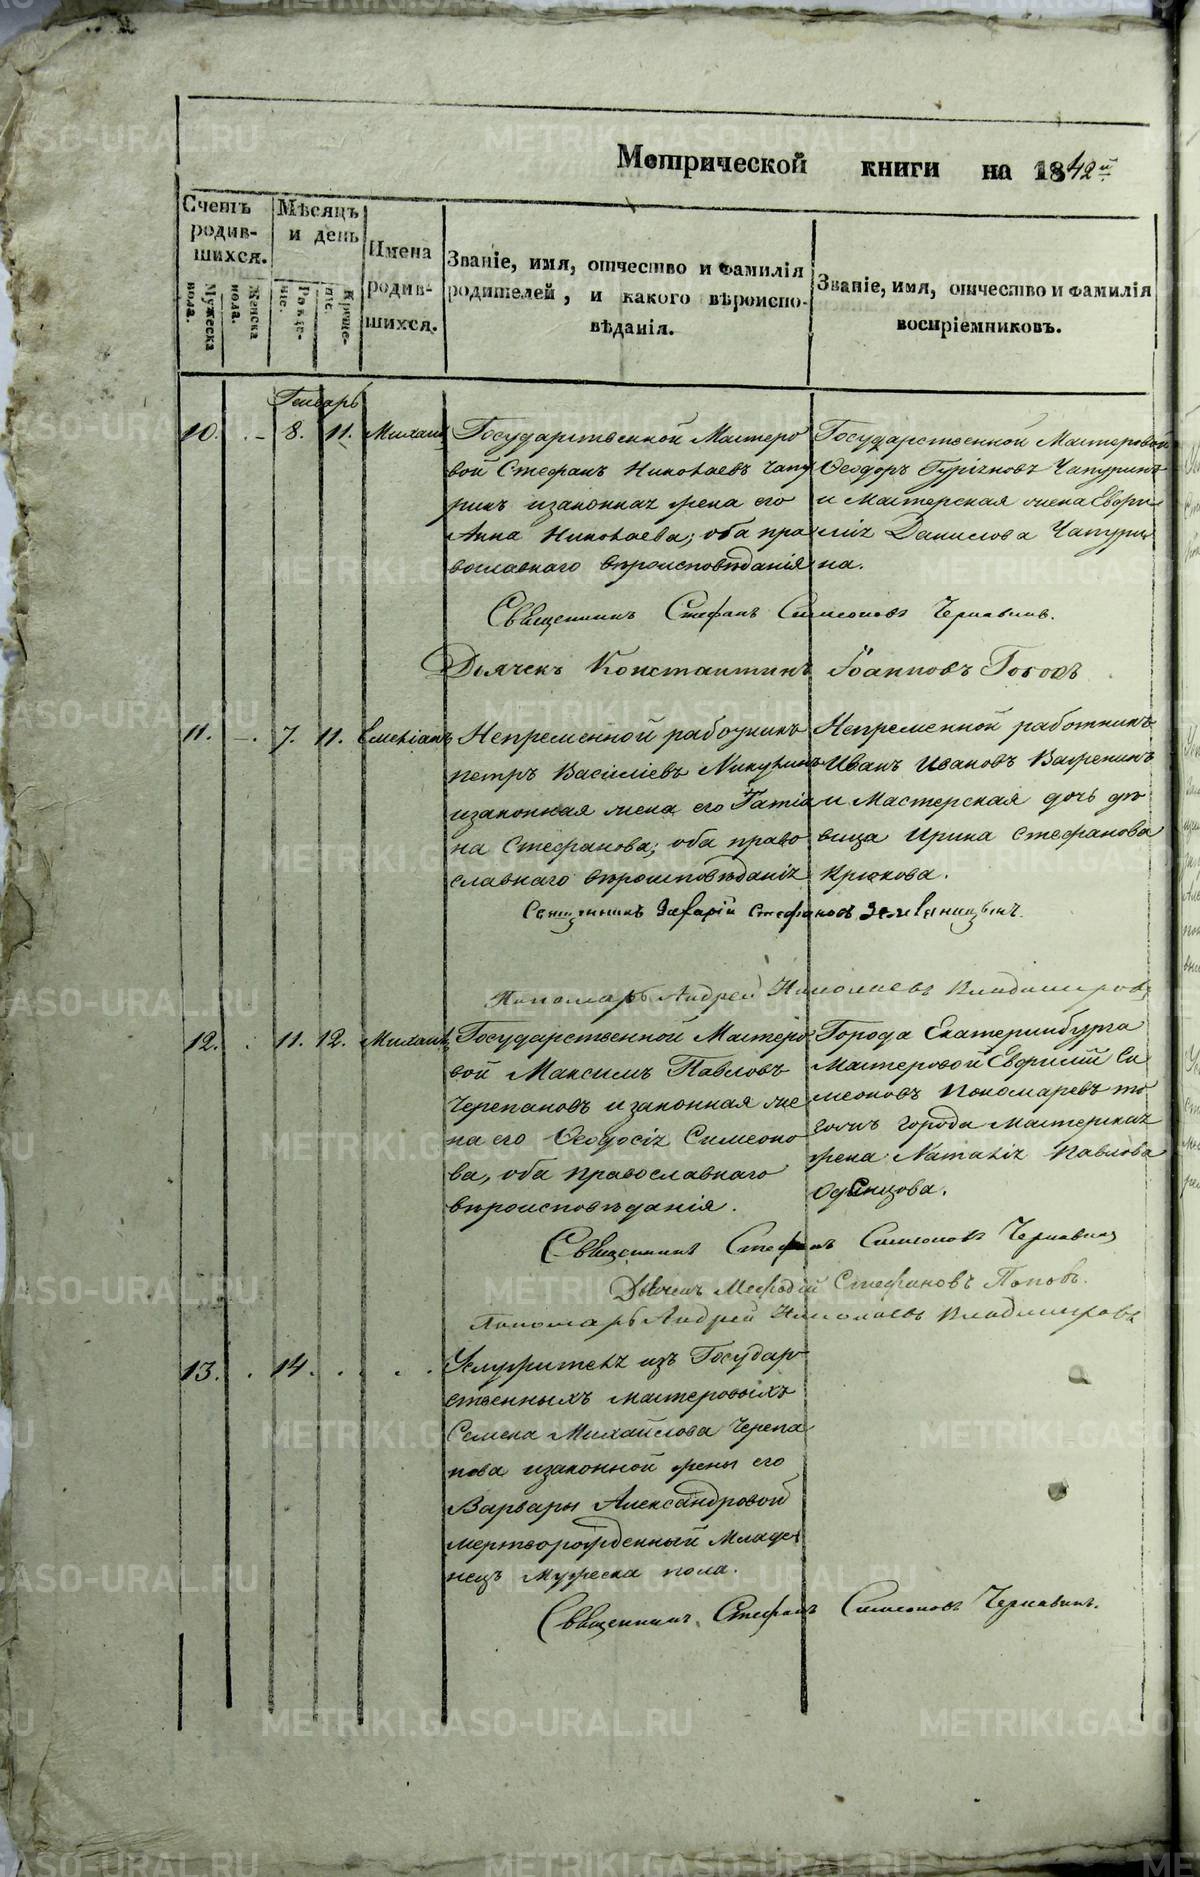 Метрической книги на 1842й
Счетъ родив-шихся.
Мужеска пола.
Женска пола.
Мѣсяцъ и день
Рожде-ніе.
Креще-ніе.
Имена родив-шихся.
Званіе, имя, отчество и фамилія родителей, и какого вѣроиспо-вѣданія.
Званіе, имя, отчество и фамилія воспріемниковъ.
Генварь
10. - 8. 11. Михаилъ
Государственной Мастеро
вой Стефанъ Николаевъ Чапу
ринъ изаконная жена его
Анна Николаева; оба пра
вославнаго вѣроисповѣданія
Государственной Мастеровой
Ѳеодоръ Чапуринъ
и Мастерская жена Евфи
мія Данилова Чапури
на.
Священникъ Стефанъ Симеоновъ Чернавинъ.
Дьячекъ Константинъ Іоанновъ
11. - 7. 11. Емеліанъ
Непременной работникъ
петръ Василіевъ Микулинъ
изаконная жена его Татіа
на Стефанова; оба право
славнаго вѣроисповѣданія
Непременной работникъ
Иванъ Ивановъ
и Мастерская дочь дѣ
вица Ирина Стефанова
Крюкова.
Священникъ Захарій Стефановъ Земляницынъ.
Пономарь Андрей Николаевъ Владимировъ
12. 11. 12. Михаилъ
Государственной Мастеро
вой Максимъ Павловъ
Черепановъ изаконная же
на его Ѳеодосія Симеоно
ва, оба православнаго
вѣроисповѣданія.
Города Екатеринбурга
Мастеровой Евфимій Си
меоновъ Пономаревъ то
гожъ города мастерская
жена Наталія Павлова
Одинцова.
Священникъ Стефанъ Симеоновъ Чернавинъ
Дьячекъ Мефодій Стефановъ Поповъ.
Пономарь Андрей Николаевъ Владимировъ
13. 14.
Услужителя изъ Государ
ственныхъ мастеровыхъ
Семена Михайлова Черепа
нова изаконной жены его
Варвары Александровой
мертворожденный Младе
нецъ Мужеска пола.
Священникъ Стефанъ Симеоновъ Чернавинъ.
METRIKI.GASO-URAL.RU